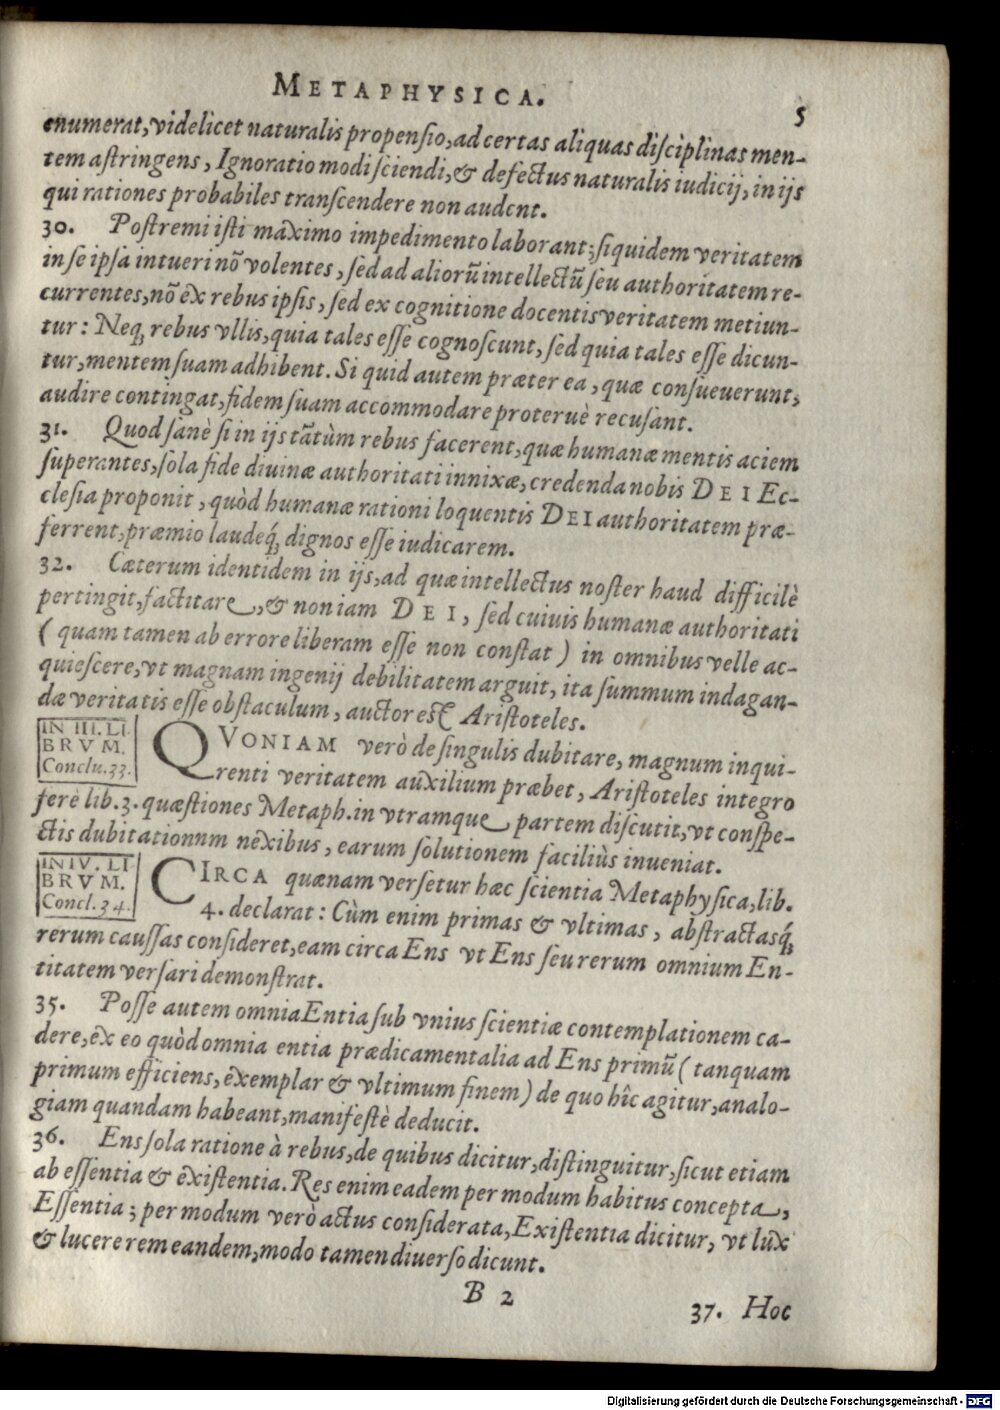 METAPHYSICA. 5
enumerat, videlicet naturalis propensio, ad certas aliquas disciplinas men-
tem astringens, Ignoratio modi sciendi, & defectus naturalis iudicij, in ijs
qui rationes probabiles transcendere non audent.
30. Postremi isti maximo impedimento laborant; siquidem veritatem
in se ipsa intueri nõ volentes, sed ad aliorũ intellectũ seu authoritatem re-
currentes, nõ ex rebus ipsis, sed ex cognitione docentis veritatem metiun-
tur: Neq; rebus vllis, quia tales esse cognoscunt, sed quia tales esse dicun-
tur, mentem suam adhibent. Si quid autem præter ea, quæ consueuerunt,
audire contingat, fidem suam accommodare proteruè recusant.
31. Quod sanè si in ijs tãtùm rebus facerent, quæ humanæ mentis aciem
superantes, sola fide diuinæ authoritati innixæ, credenda nobis DEI Ec-
clesia proponit, quòd humanæ rationi loquentis DEI authoritatem præ-
ferrent, præmio laudeq́; dignos esse iudicarem.
32. Cæterum identidem in ijs, ad quæ intellectus noster haud difficilè
pertingit, factitare, & non iam DEI, sed cuiuis humanæ authoritati
(quam tamen ab errore liberam esse non constat) in omnibus velle ac-
quiescere, vt magnam ingenij debilitatem arguit, ita summum indagan-
dæ veritatis esse obstaculum, auctor est Aristoteles.
IN III. LI-
BRVM.
Conclu. 33.
QVONIAM verò de singulis dubitare, magnum inqui-
renti veritatem auxilium præbet, Aristoteles integro
ferè lib. 3. quæstiones Metaph. in vtramque partem discutit, vt conspe-
ctis dubitationnm nexibus, earum solutionem faciliùs inueniat.
IN IV. LI
BRVM.
Concl. 34.
CIRCA quænam versetur hæc scientia Metaphysica, lib.
4. declarat: Cùm enim primas & vltimas, abstractasq́;
rerum caussas consideret, eam circa Ens vt Ens seu rerum omnium En-
titatem versari demonstrat.
35. Posse autem omnia Entia sub vnius scientiæ contemplationem ca-
dere, ex eo quòd omnia entia prædicamentalia ad Ens primũ (tanquam
primum efficiens, exemplar & vltimum finem) de quo hîc agitur, analo-
giam quandam habeant, manifestè deducit.
36. Ens sola ratione à rebus, de quibus dicitur, distinguitur, sicut etiam
ab essentia & existentia. Res enim eadem per modum habitus concepta,
Essentia; per modum verò actus considerata, Existentia dicitur, vt lux
& lucere rem eandem, modo tamen diuerso dicunt.
B 2
37. Hoc
Digitalisierung gefördert durch die Deutsche Forschungsgemeinschaft - DFG